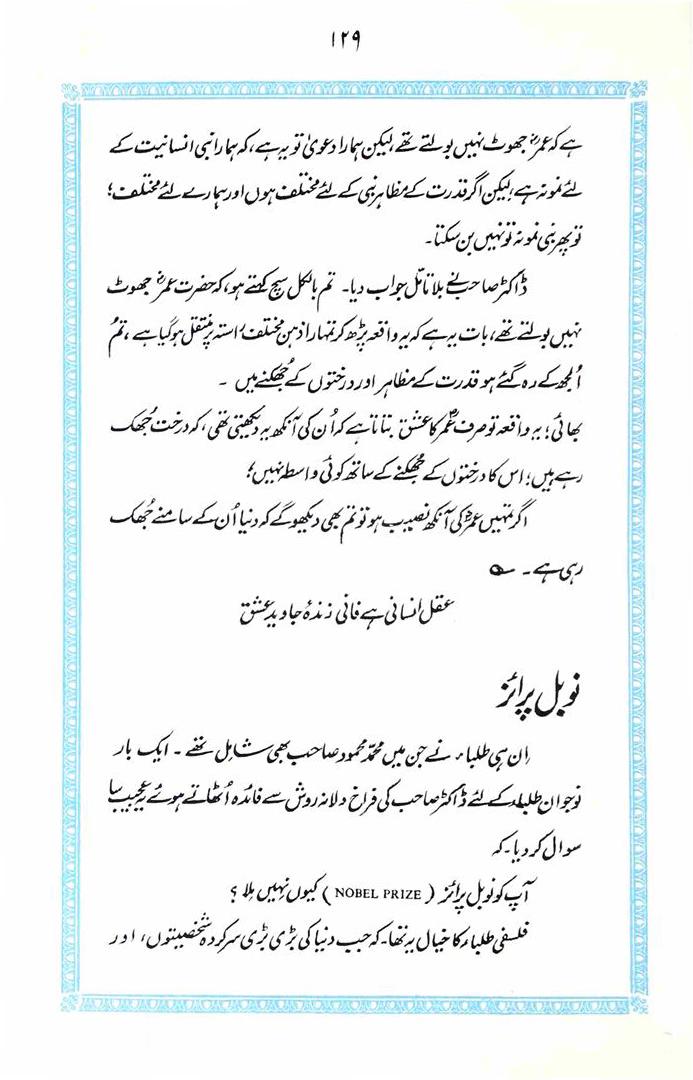 ۱۲۹
ہے کہ عمرؓ جھوٹ نہیں بولتے تھے، لیکن ہمارا دعویٰ تو یہ ہے، کہ ہمارا نبی انسانیت کے
لئے نمونہ ہے، لیکن اگر قدرت کے مظاہر نبی کے لئے مختلف ہوں اور ہمارے لئے مختلف؛
تو پھر نبی نمونہ تو نہیں بن سکتا۔
ڈاکٹر صاحب نے بلا تامل جواب دیا۔ تم بالکل سچ کہتے ہو، کہ حضرت عمرؓ جھوٹ
نہیں بولتے تھے، بات یہ ہے کہ یہ واقعہ پڑھ کر تمہارا ذہن مختلف راستہ پر منتقل ہو گیا ہے، تم
اُلجھ کے رہ گئے ہو قدرت کے مظاہر اور درختوں کے جُھکنے میں ۔
بھائی؛ یہ واقعہ تو صرف عمرؓ کا عشق بتاتا ہے کہ اُن کی آنکھ یہ دیکھتی تھی، کہ درخت جُھک
رہے ہیں؛ اس کا درختوں کے جُھکنے کے ساتھ کوئی واسطہ نہیں؛
اگر تمہیں عمرؓ کی آنکھ نصیب ہو تو تم بھی دیکھو گے کہ دنیا اُن کے سامنے جُھک
رہی ہے۔ ؎
عقل انسانی ہے فانی زندۂ جاوید عشق
نوبل پرائز
اِن ہی طلباء نے جن میں محمّد محمود صاحب بھی شامل تھے ۔ ایک بار
نوجوان طلباء کے لئے ڈاکٹر صاحب کی فراخ دلانہ روش سے فائدہ اُٹھاتے ہوئے یہ عجیب سا
سوال کر دیا۔ کہ
آپ کو نوبل پرائز ( NOBEL PRIZE ) کیوں نہیں مِلا ؟
فلسفی طلباء کا خیال یہ تھا۔ کہ جب دنیا کی بڑی بڑی سرکردہ شخصیتوں، اور